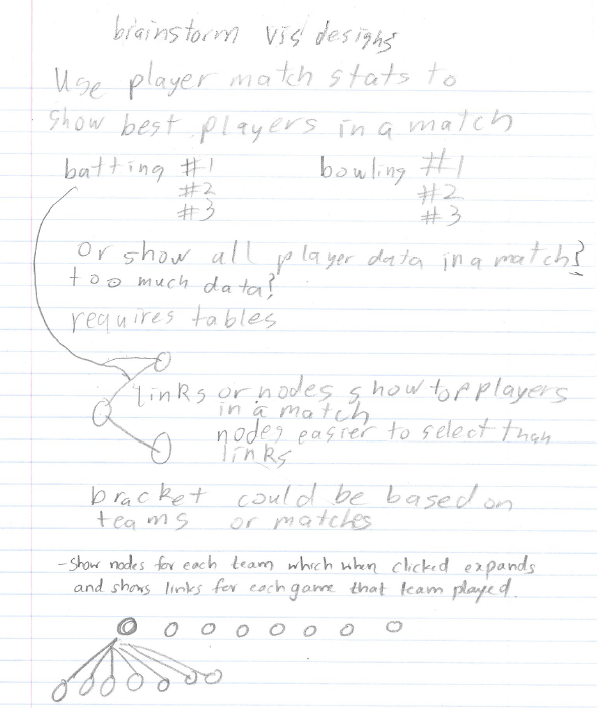 brainstorm vis designs
Use player match stats to
show best players in a match
batting #1 bowling #1
#2 #2
#3 #3
or show all player data in a match?
too much data?
requires tables
links or nodes show top players
in a match
nodes easier to select than
links
bracket could be based on
teams or matches
- Show nodes for each team which when clicked expands
and shows links for each game that team played.